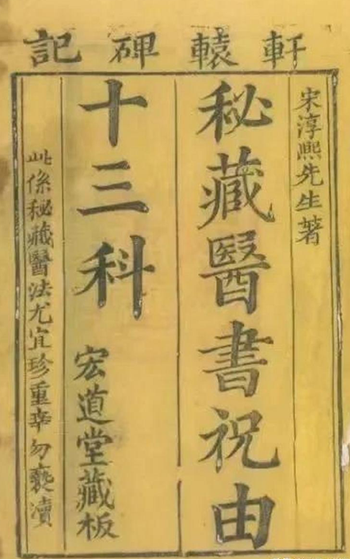 軒轅碑記
宋淳熙先生著
秘藏醫書祝由
十三科
宏道堂藏板
此係秘藏醫法尤宜珍重幸勿褻瀆